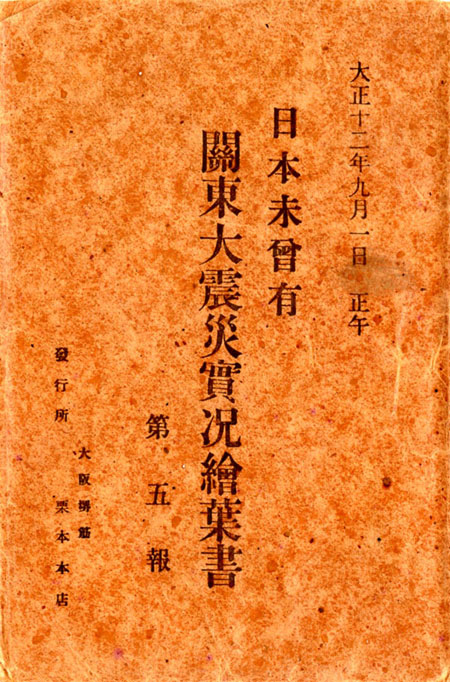 大正十二年九月一日 正午
日本未曾有
關東大震災實况繪葉書
第五報
大阪堺筋
栗本本店
發行所